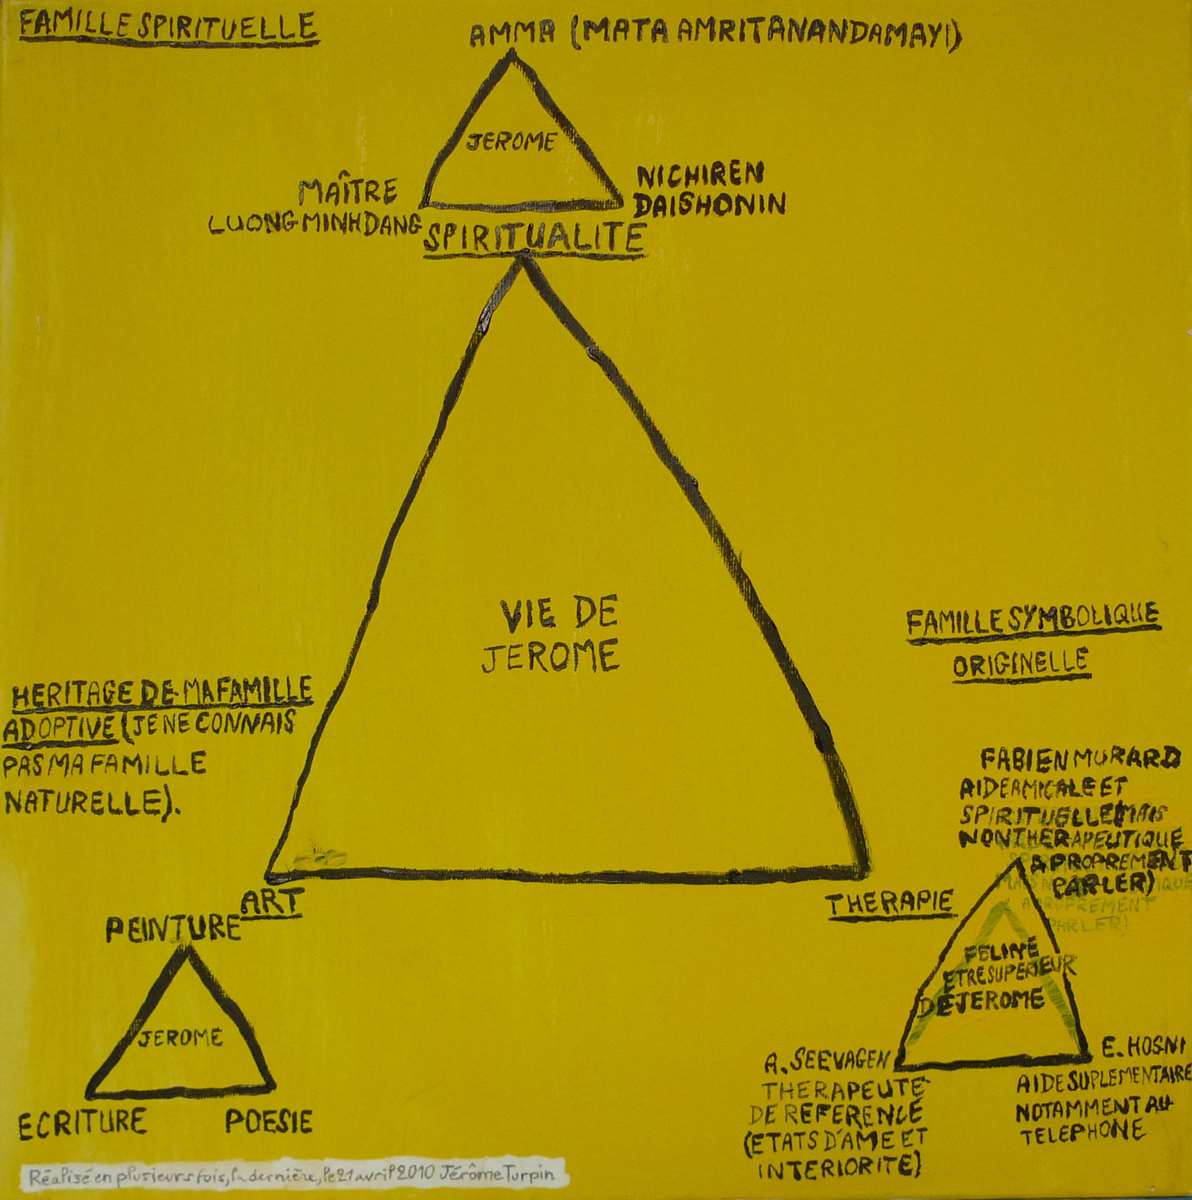 FAMILLE SPIRITUELLE
AMMA (MATA AMRITANANDAMAYI)
JEROME
MAÎTRE
LUONG MINH DANG
NICHIREN
DAISHONIN
SPIRITUALITE
VIE DE
JEROME
HERITAGE DE MA FAMILLE
ADOPTIVE (JE NE CONNAIS
PAS MA FAMILLE
NATURELLE).
ART
PEINTURE
JEROME
ECRITURE
POESIE
FAMILLE SYMBOLIQUE
ORIGINELLE
FABIEN MURARD
AIDE AMICALE ET
SPIRITUELLE (MAIS
NON THERAPEUTIQUE
A PROPREMENT
PARLER)
THERAPIE
FELINE
ETRE SUPERIEUR
DE JEROME
A. SEEVAGEN
THERAPEUTE
DE REFERENCE
(ETATS D'AME ET
INTERIORITE)
E. HOSNI
AIDE SUPLEMENTAIRE
NOTAMMENT AU
TELEPHONE
Réalisé en plusieurs fois, la dernière, le 21 avril 2010 Jérôme Turpin